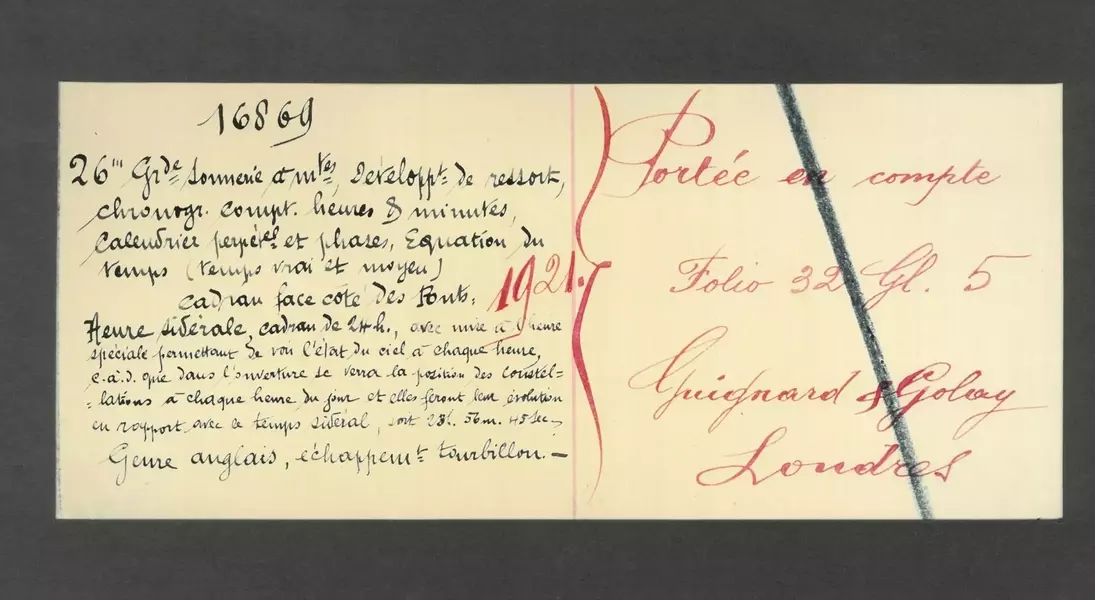 16869
26''' Grde Sonnerie à mtes, Développt de ressort,
chronogr. compt. heures & minutes,
Calendrier perpétel et phases, Equation du
temps (temps vrai et moyen)
Cadran face côté des Ponts.
Heure sidérale, cadran de 24 h., avec mise à l'heure
spéciale permettant de voir l'état du ciel à chaque heure,
c.à.d. que dans l'ouverture se verra la position des Constel=
=lations à chaque heure du jour et elles feront leur évolution
en rapport avec le temps sidéral, soit 23h. 56m. 45sec.
Genre anglais, échappemt tourbillon. —
1921.
Portée en compte
Folio 32 Gl. 5
Guignard & Golay
Londres